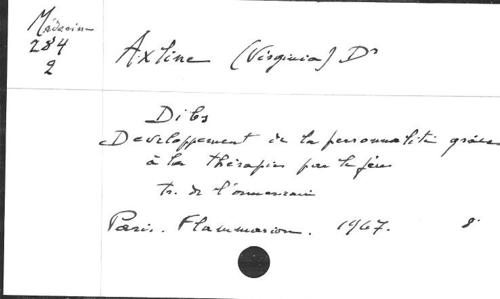 Médecine
284
2
Axline (Virginia) Dr
Dibs
Developpement de la personnalité grâce
à la thérapie par le jeu
tr. de l'américain
Paris. Flammarion. 1967. 8°